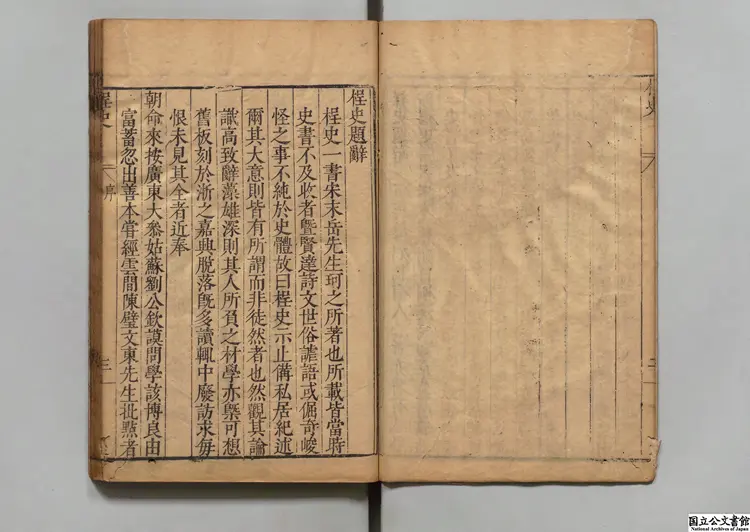 桯史題辭
桯史一書宋末岳先生珂之所著也所載皆當時
史書不及收者曁賢達詩文世俗謔語或倔奇峻
怪之事不純於史體故曰桯史示止備私居紀述
爾其大意則皆有所謂而非徒然者也然觀其論
議高致辭藻雄深則其人所負之材學亦槩可想
舊板刻於浙之嘉興脫落旣多讀輒中廢訪求毎
恨未見其全者近奉
朝命來按廣東大叅姑蘇劉公欽謨問學該博良由
富蓄忽出善本甞經雲間陳璧文東先生批點者
桯史
序
三
桯史
三
国立公文書館
National Archives of Japan